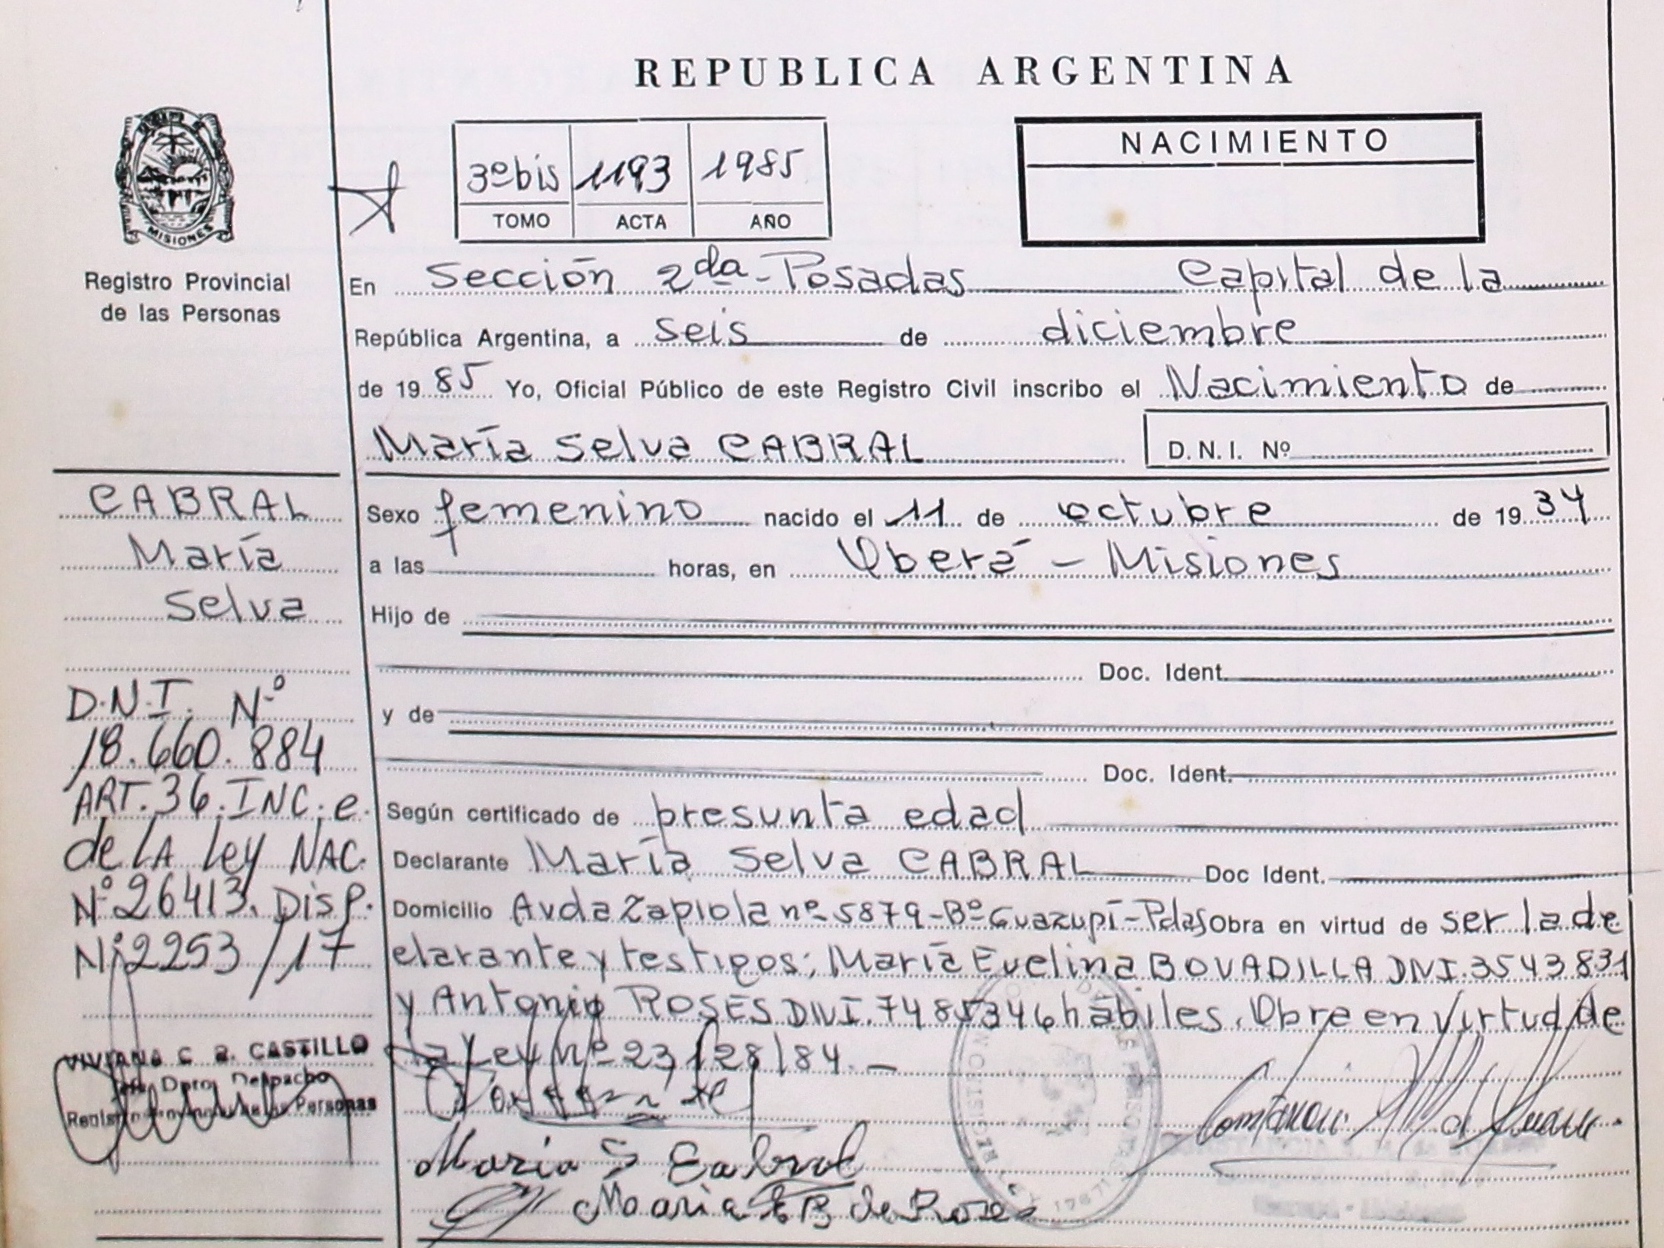 REPUBLICA ARGENTINA
MISIONES
Registro Provincial
de las Personas
3º bis 1193 1985
TOMO ACTA AÑO
NACIMIENTO
En Sección 2da - Posadas Capital de la
República Argentina, a seis de diciembre
de 1985 Yo, Oficial Público de este Registro Civil inscribo el Nacimiento de
María Selva CABRAL D.N.I. Nº
CABRAL
María
Selva
D.N.I. Nº
18.660.884
ART. 36. INC. e.
de LA Ley NAC.
Nº 26413. Disp.
Nº 2253/17
VIVIANA C. B. CASTILLO
Dpto. Despacho
Registro Provincial de las Personas
Sexo femenino nacido el 11 de octubre de 1934
a las horas, en Oberá - Misiones
Hijo de
Doc. Ident.
y de
Doc. Ident.
Según certificado de presunta edad
Declarante María Selva CABRAL Doc Ident.
Domicilio Avda Zapiola nº 5879 - Bº Guazupí - Pdas Obra en virtud de ser la de
clarante y testigos; María Evelina BOVADILLA DNI. 3543831
y Antonio ROSES DNI. 7485346 hábiles. Obre en virtud de
la Ley nº 23128/84. -
Maria S Cabral
Maria E B de Roses